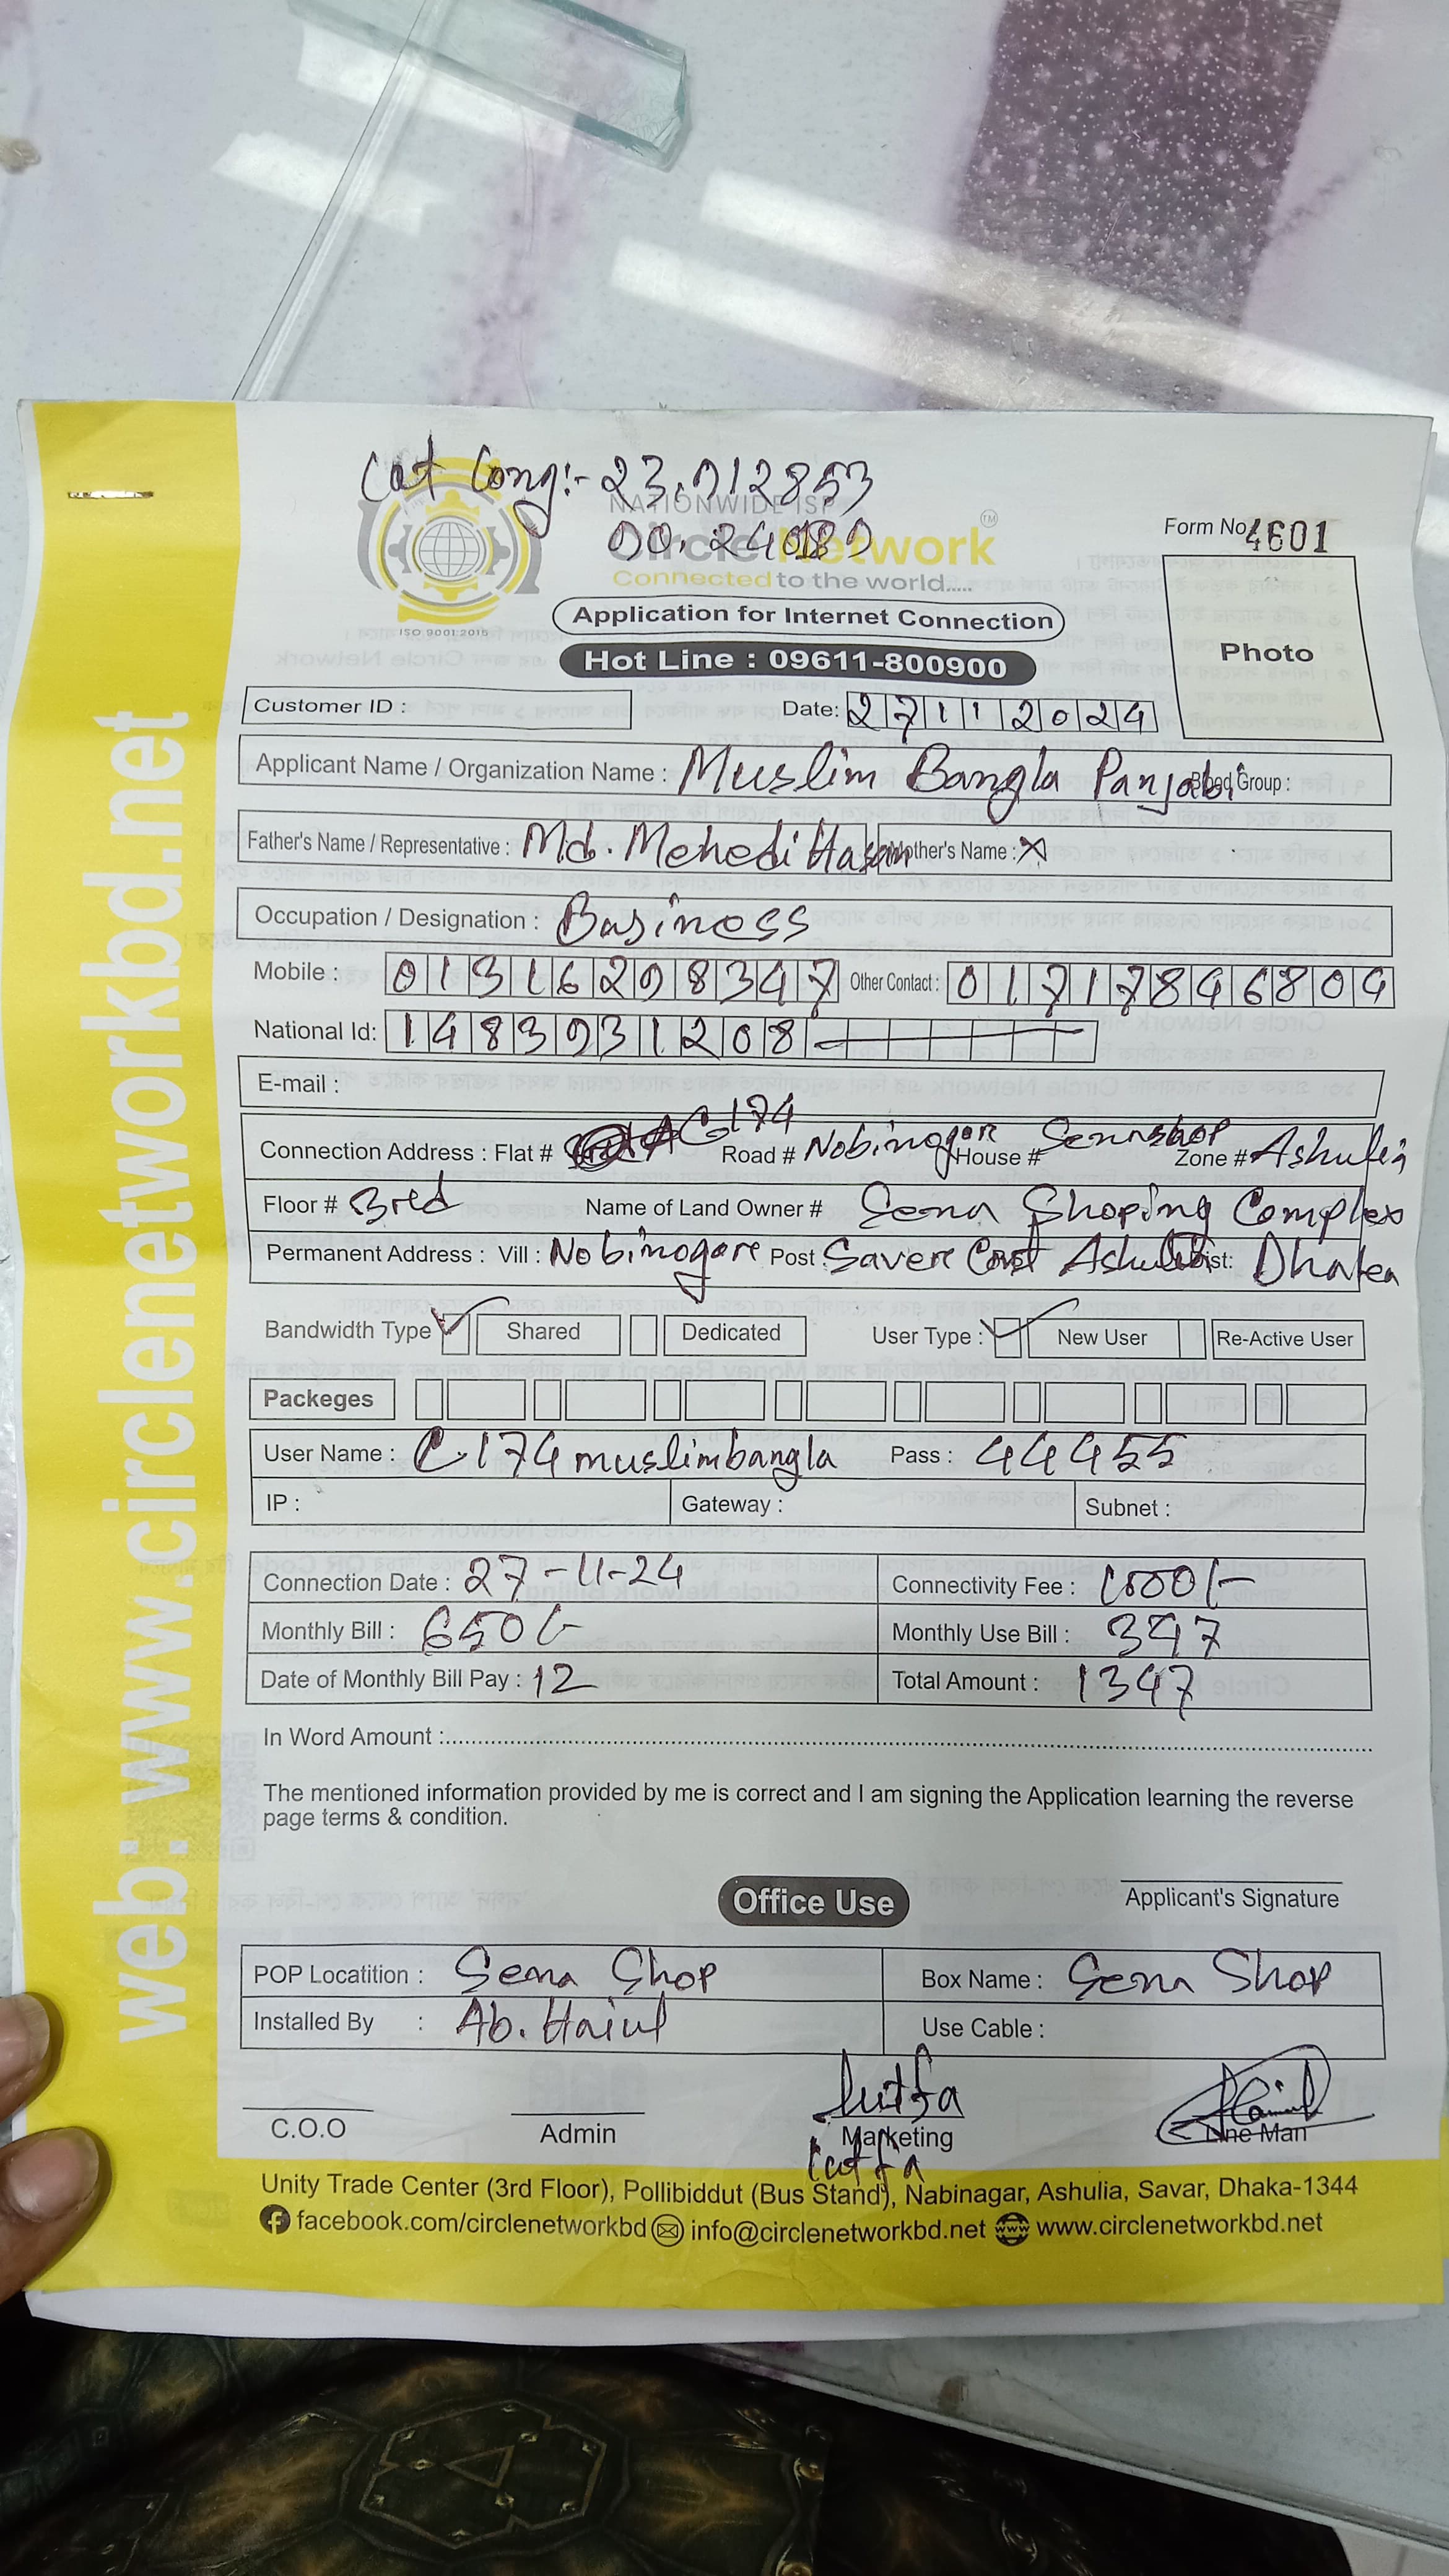 Cat Long:- 23.912853
NATIONWIDE ISP
Circle Network TM
Connected to the world.....
ISO 9001:2015
Form No 4601
Application for Internet Connection
Hot Line : 09611-800900
Photo
Customer ID :
Date: 27112024
Applicant Name / Organization Name : Muslim Bangla Panjabi Blood Group :
Father's Name / Representative : Md. Mehedi Hasan Mother's Name : X
Occupation / Designation : Business
Mobile : 01316298347 Other Contact : 01717846804
National Id: 1483931208
E-mail :
Connection Address : Flat # C-174 Road # Nobinogor House # Senashop Zone # Ashulia
Floor # 3red Name of Land Owner # Sena Shoping Complex
Permanent Address : Vill : Nobinogore Post : Saver Cant Ashulia Dist: Dhaka
Bandwidth Type Shared Dedicated User Type : New User Re-Active User
Packeges
User Name : C-174muslimbangla Pass : 44455
IP : Gateway : Subnet :
Connection Date : 27-11-24 Connectivity Fee : 1000/-
Monthly Bill : 650/- Monthly Use Bill : 347
Date of Monthly Bill Pay : 12 Total Amount : 1347
In Word Amount :
The mentioned information provided by me is correct and I am signing the Application learning the reverse
page terms & condition.
Applicant's Signature
Office Use
POP Locatition : Sena Shop Box Name : Sena Shop
Installed By : Ab. Haiul Use Cable :
lutfa
C.O.O Admin Marketing Line Man
lutfa
Unity Trade Center (3rd Floor), Pollibiddut (Bus Stand), Nabinagar, Ashulia, Savar, Dhaka-1344
facebook.com/circlenetworkbd info@circlenetworkbd.net www.circlenetworkbd.net
web: www.circlenetworkbd.net